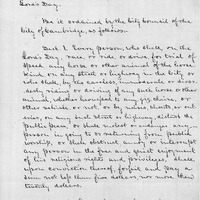 Lord's Day.
Be it ordained by the City Council of the
City of Cambridge, as follows:
Sect. 1. Every person, who shall, on the
Lord's Day, race, or ride, or drive for trial of
speed any horse, or other animal of that
kind, on any street or highway in the city, or
who shall, by the careless, immoderate or disor-
derly riding or driving of any such horse or other
animal, whether harnessed to any gig, chaise, or
other vehicle or not, or by noise, shouts or out-
cries, on any such street or highway, disturb the
public peace, or shall molest or endanger any
person in going to or returning from public
worship, or shall obstruct, annoy or interrupt
any person in the free and quiet enjoyment
of his religious rights and privileges, shall,
upon conviction thereof, forfeit and pay a
sum not less than five dollars, nor more than
twenty dollars.